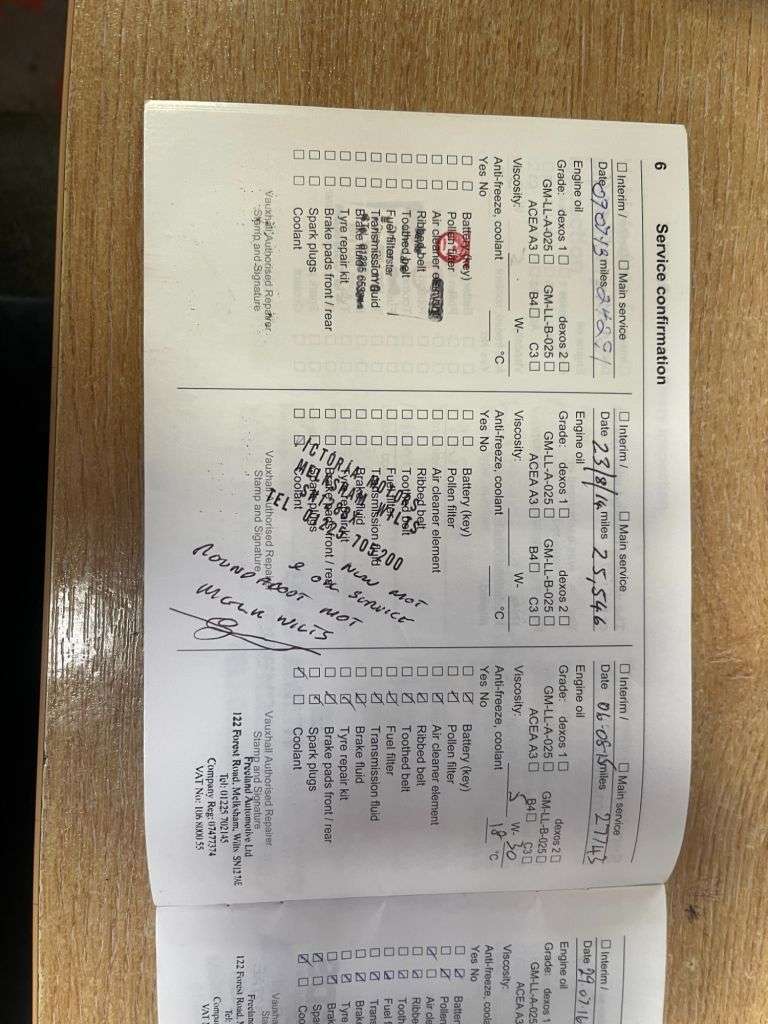 6 Service confirmation
☐ Interim / ☐ Main service
Date 090713 miles
Engine oil
Grade: dexos 1 ☐ dexos 2 ☐
GM-LL-A-025 ☐ GM-LL-B-025 ☐
ACEA A3 ☐ B4 ☐ C3 ☐
Viscosity: W-
Anti-freeze, coolant °C
Yes No
☐ ☐ Battery (key)
☐ ☐ Pollen filter
☐ ☐ Air cleaner
☐ ☐ Ribbed belt
☐ ☐ Toothed belt
☐ ☐ Fuel filter
☐ ☐ Transmission fluid
☐ ☐ Brake
☐ ☐ Tyre repair kit
☐ ☐ Brake pads front / rear
☐ ☐ Spark plugs
☐ ☐ Coolant
Vauxhall Authorised Repairer
Stamp and Signature
☐ Interim / ☐ Main service
Date 23/8/14 miles 25,546
Engine oil
Grade: dexos 1 ☐ dexos 2 ☐
GM-LL-A-025 ☐ GM-LL-B-025 ☐
ACEA A3 ☐ B4 ☐ C3 ☐
Viscosity: W-
Anti-freeze, coolant °C
Yes No
☐ ☐ Battery (key)
☐ ☐ Pollen filter
☐ ☐ Air cleaner element
☐ ☐ Ribbed belt
☐ ☐ Toothed belt
☐ ☐ Fuel filter
☐ ☐ Transmission fluid
☐ ☐ Brake fluid
☐ ☐ Tyre repair kit
☐ ☐ Brake pads front / rear
☐ ☐ Spark plugs
☐ ☐ Coolant
VICTORIA MOTORS
MELKSHAM WILTS
TEL 01225 705200
NEW MOT
& OIL SERVICE
ROUNDABOUT MOT
MELK WILTS
Vauxhall Authorised Repairer
Stamp and Signature
☐ Interim / ☐ Main service
Date 06-08-15 miles 27743
Engine oil
Grade: dexos 1 ☐ dexos 2 ☐
GM-LL-A-025 ☐ GM-LL-B-025 ☐
ACEA A3 ☐ B4 ☐ C3 ☐
Viscosity: 5 W- 30
Anti-freeze, coolant 18 °C
Yes No
☐ ☑ Battery (key)
☐ ☑ Pollen filter
☐ ☑ Air cleaner element
☐ ☑ Ribbed belt
☐ ☑ Toothed belt
☐ ☑ Fuel filter
☐ ☑ Transmission fluid
☐ ☑ Brake fluid
☐ ☑ Tyre repair kit
☐ ☑ Brake pads front / rear
☐ ☑ Spark plugs
☑ ☐ Coolant
Vauxhall Authorised Repairer
Stamp and Signature
Freeland Automotive Ltd
122 Forest Road, Melksham, Wilts SN12 7AE
Tel: 01225 702145
Company Reg: 07477374
VAT No: 106 8000 55
☐ Interim /
Date 29 07 16
Engine oil
Grade: dexos 1
GM-LL-A-025
ACEA A3
Viscosity:
Anti-freeze, coola
Yes No
☐ ☑ Batter
☐ ☑ Pollen
☑ ☐ Air cle
☐ ☑ Ribbe
☐ ☑ Tooth
☐ ☑ Fuel f
☐ ☑ Trans
☐ ☑ Brake
☐ ☑ Tyre
☐ ☑ Brak
☑ ☐ Spa
☑ ☐ Coo
Vauxha
Star
Freelan
122 Forest Road,
Tel:
Compa
VAT